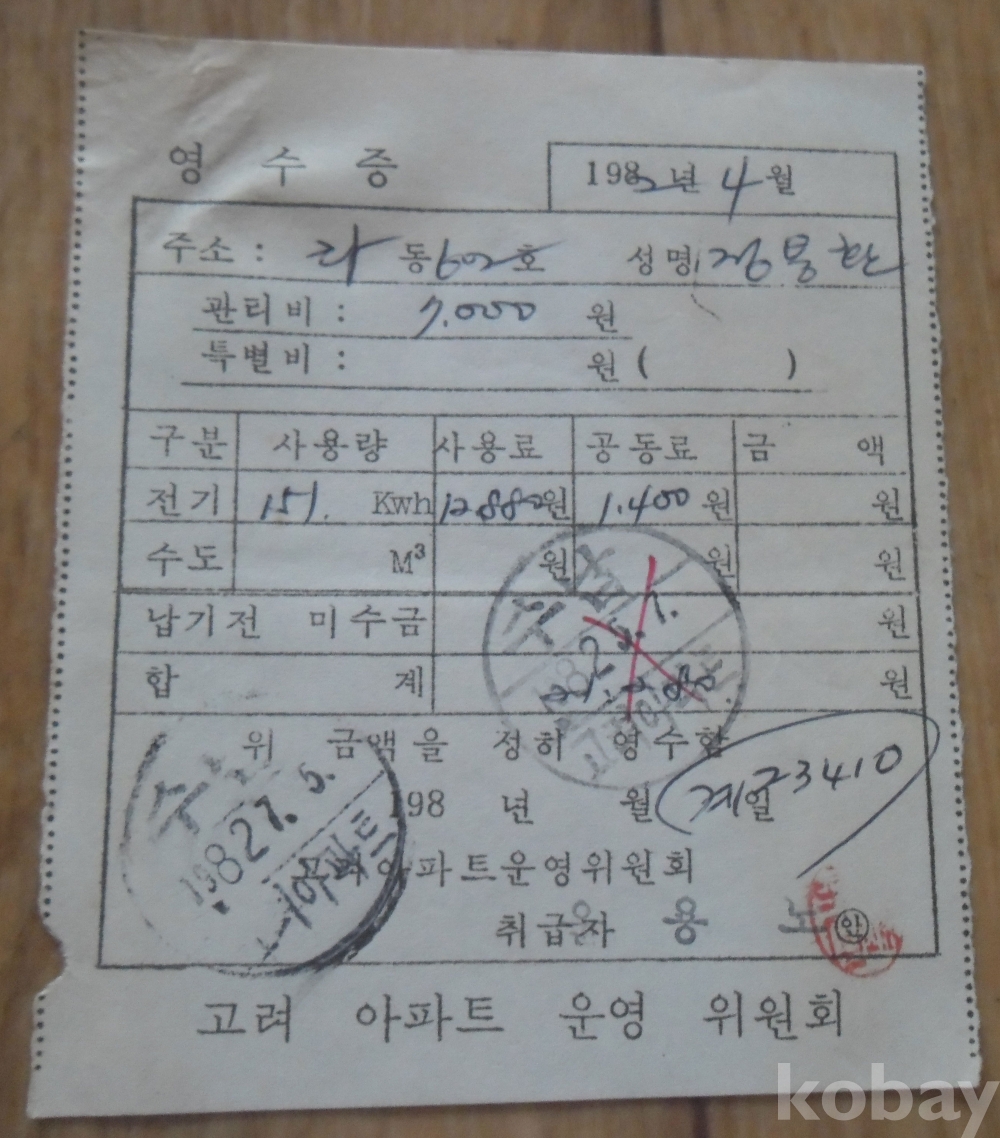 영 수 증
1982년 4월
주소 : 라 동 602호 성명 정봉환
관리비 : 7.000 원
특별비 : 원 ( )
구분 사용량 사용료 공동료 금 액
전기 151. Kwh 12880원 1.400원 원
수도 M³ 원 원 원
납기전 미수금 원
합 계 원
위 금액을 정히 영수함
198 년 월 일
계 23410
고려아파트운영위원회
취급자 인
고려 아파트 운영 위원회
kobay